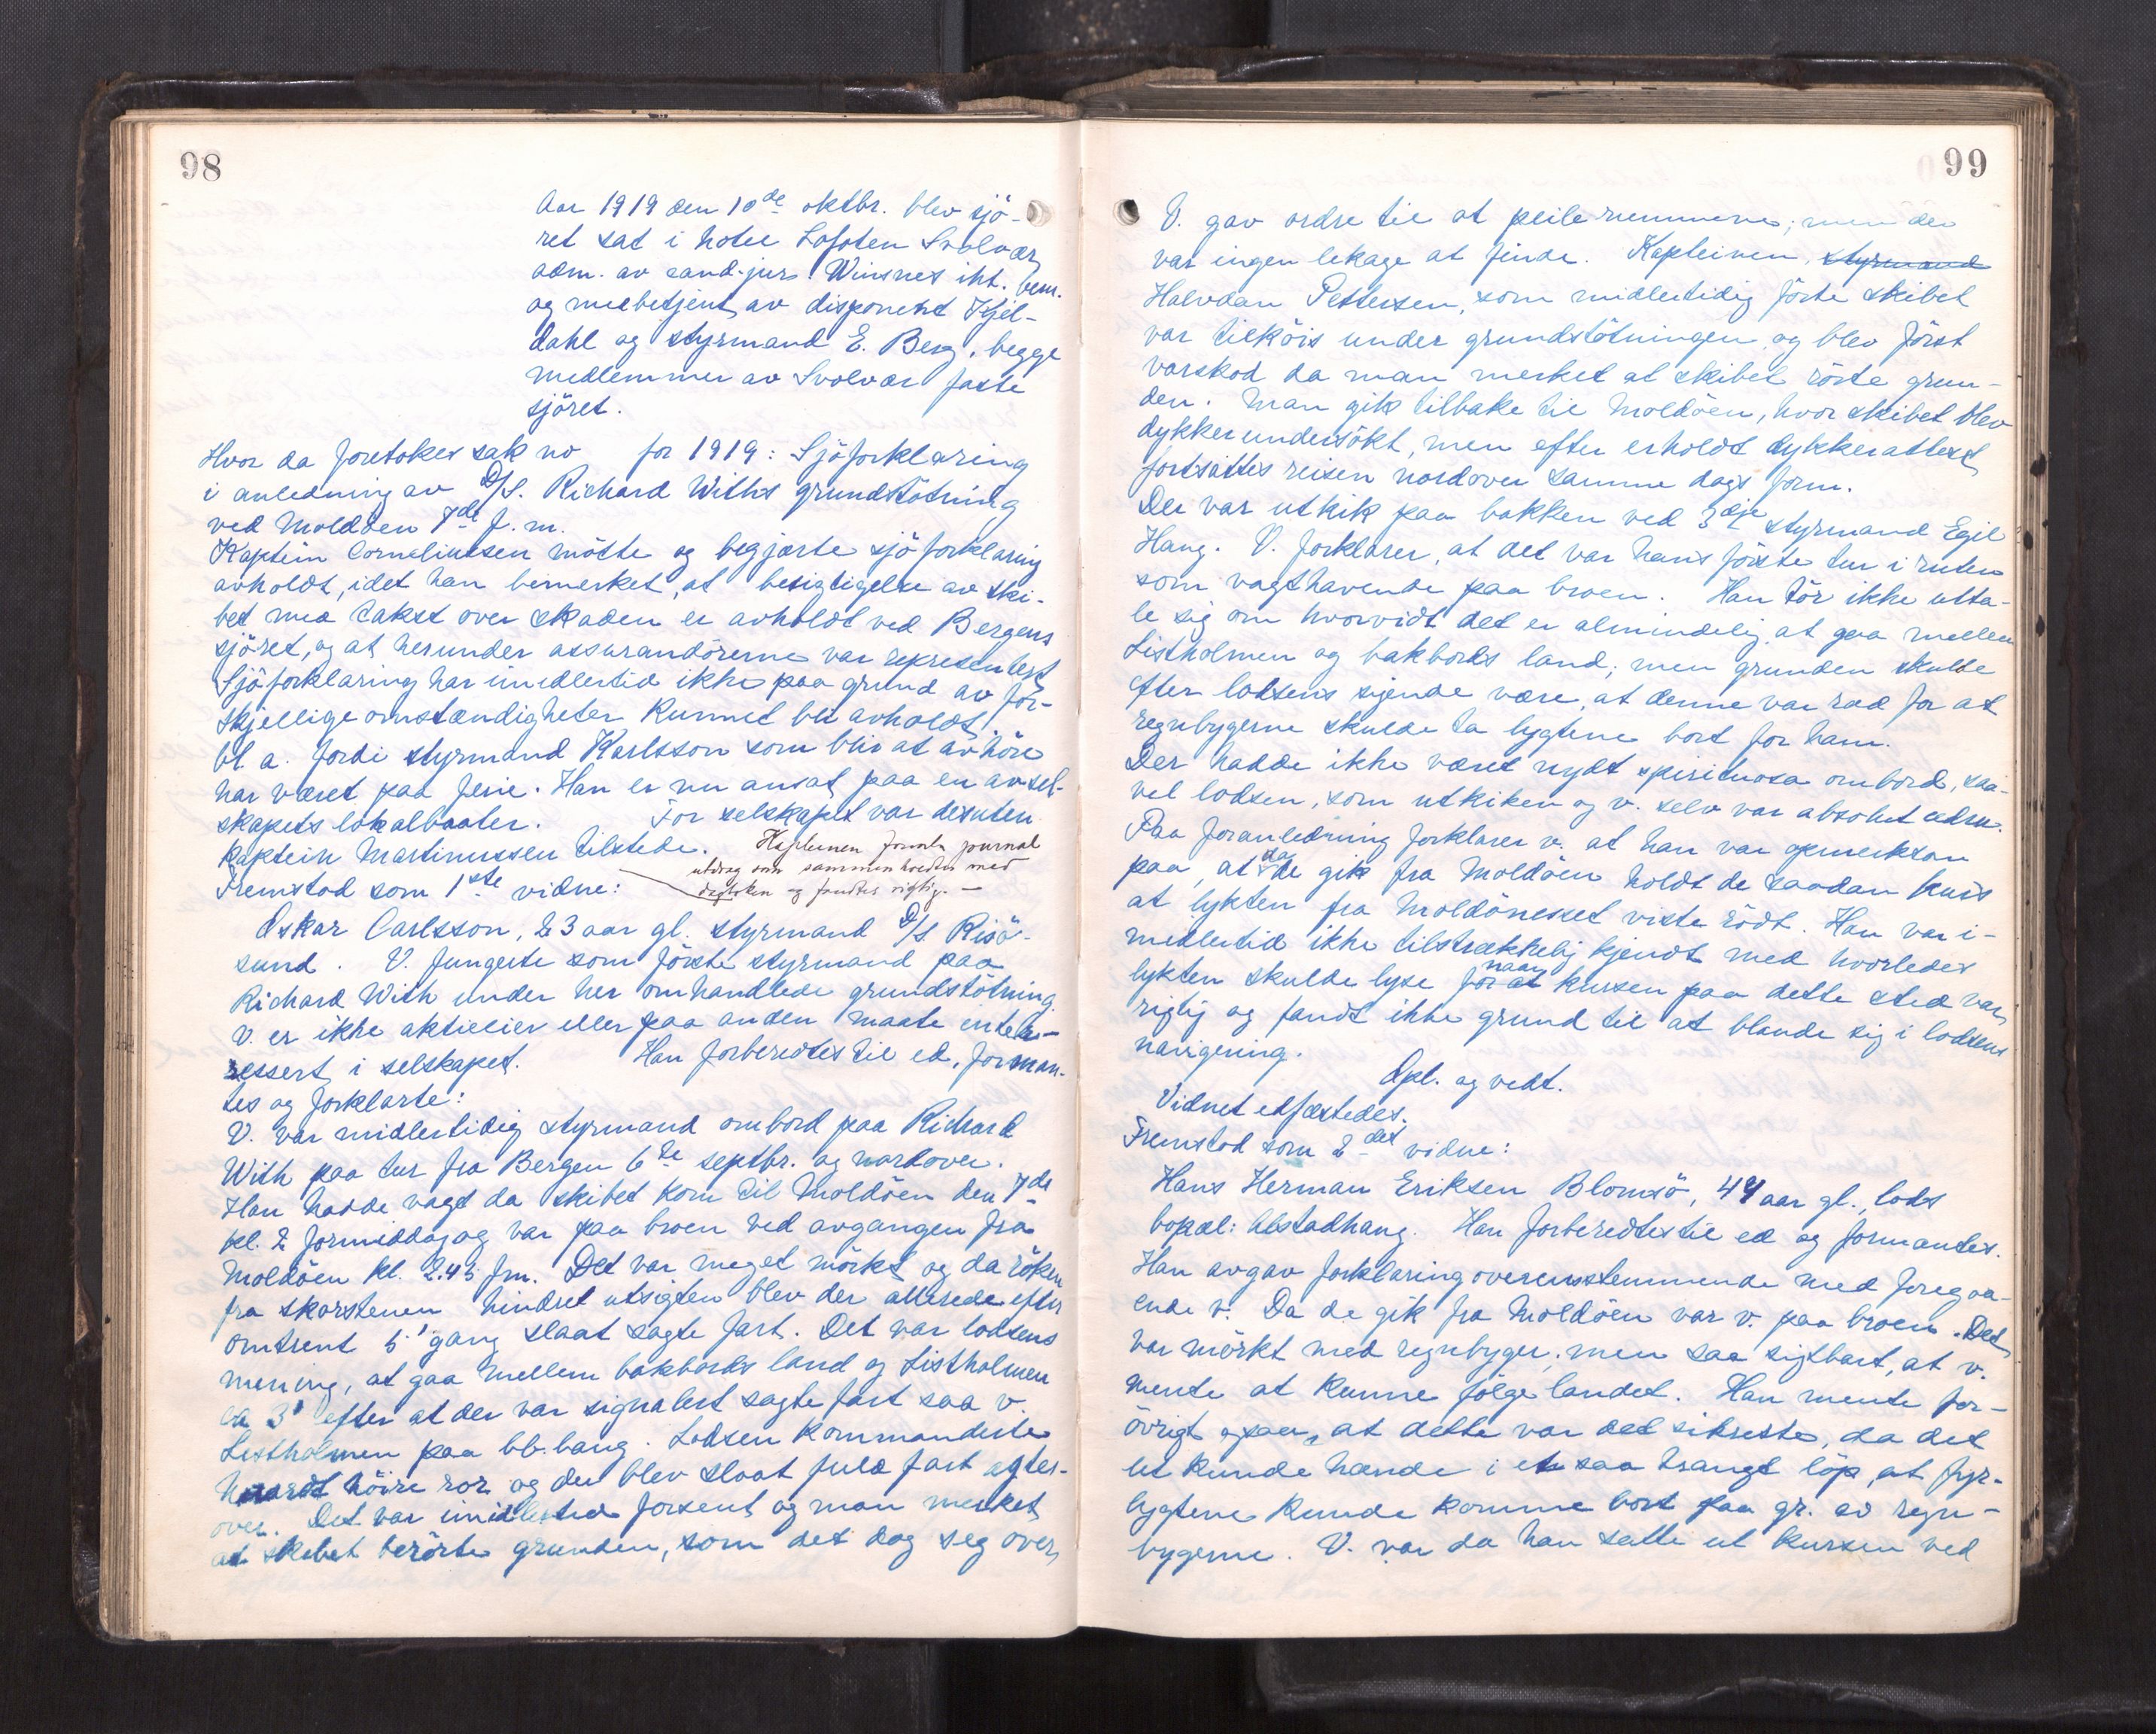 98
Aar 1919 den 10de oktbr. blev sjö-
ret sat i hotel Lofoten Svolvær,
adm. av cand-jur. Winsnes iht. bem.
og medbetjent av disponent Kjel-
dahl og styrmand E. Berg, begge
medlemmer av Svolvær faste
sjöret.
Hvor da foretokes sak no for 1919: Sjöforklaring
i anledning av D/S. Richard Withs grundstötning
ved Moldöen 7de f.m.
Kaptein Corneliussen mötte og begjærte sjöforklaring
avholdt, idet han bemerket, at besigtigelse av ski-
bet med takst over skaden er avholdt ved Bergens
sjöret, og at herunder assurandörerne var representert.
Sjöforklaring har imidlertid ikke paa grund av for-
skjellige omstændigheter kunnet bli avholdt,
bl. a. fordi styrmand Karlsson som blir at avhöre
har været paa ferie. Han er nu ansat paa en av sel-
skapets lokalbaater. For selskapet var desuten
kaptein Martinussen tilstede. Kapteinen fremla journal
utdrag som sammenholdtes med
dagboken og fandtes rigtig. —
Fremstod som 1ste vidne:
Oskar Carlsson, 23 aar gl. styrmand D/S Risö-
sund. V. fungerte som förste styrmand paa
Richard With under her omhandlede grundstötning.
V. er ikke aktieeier eller paa anden maate inte-
ressert i selskapet. Han forberedtes til ed, forman-
tes og forklarte:
V. var midlertidig styrmand ombord paa Richard
With paa tur fra Bergen 6te septbr. og nordover.
Han hadde vagt da skibet kom til Moldöen den 7de
kl. 2 formiddag og var paa broen ved avgangen fra
Moldöen kl. 2.45 fm. Det var meget mörkt og da röken
fra skorstenen hindret utsigten blev der allerede efter
omtrent 5' gang slaat sagte fart. Det var lodsens
mening, at gaa mellem bakbords land og Listholmen
ca 3' efter at der var signalert sagte fart saa v.
Listholmen paa bb. baug. Lodsen kommanderte
haardt höire ror og der blev slaat fuld fart agter-
over. Det var imidlertid forsent og man merket
at skibet berörte grunden, som det dog seg over,
99
V. gav ordre til at peile rummene; men der
var ingen lekage at finde. Kapteinen, styrmand
Halvdan Pettersen, som midlertidig förte skibet
var tilköis under grundstötningen og blev först
varskod da man merket at skibet rörte grun-
den. Man gik tilbake til Moldöen, hvor skibet blev
dykkerundersökt, men efter erholdt dykkerattest
fortsattes reisen nordover samme dags form.
Der var utkik paa bakken ved 3dje styrmand Egil
Haug. V. forklarer, at det var hans förste tur i ruten
som vagthavende paa broen. Han tör ikke utta-
le sig om hvorvidt det er almindelig at gaa mellem
Listholmen og bakbords land; men grunden skulde
efter lodsens sigende være, at denne var rad for at
regnbygerne skulde ta lygtene bort for ham.
Der hadde ikke været nydt spirituosa ombord, saa-
vel lodsen, som utkiken og v. selv var absolut ædru.
Paa foranledning forklarer v. at han var opmerksom
paa, at da de gik fra Moldöen holdt de saadan kurs
at lykten fra Moldönesset viste rödt. Han var i-
medlertid ikke tilstrækkelig kjendt med hvorledes
lykten skulde lyse for at naar kursen paa dette sted var
rigtig og fandt ikke grund til at blande sig i lodsens
navigering.
Opl. og vedt.
Vidnet edfæstedes.
Fremstod som 2det vidne:
Hans Herman Eriksen Blomsö, 44 aar gl., lods
bopæl: Alstadhaug. Han forberedtes til ed og formantes.
Han avgav forklaring overensstemmende med foregaa-
ende v. Da de gik fra Moldöen var v. paa broen. Det
var mörkt med regnbyger; men saa sigtbart, at v.
mente at kunne fölge landet. Han mente for-
övrigt ogsaa, at dette var det sikreste, da det
let kunde hænde i et saa trangt löp, at fyr-
lygtene kunde komme bort paa gr. av regn-
bygerne. V. var da han satte ut kursen ved